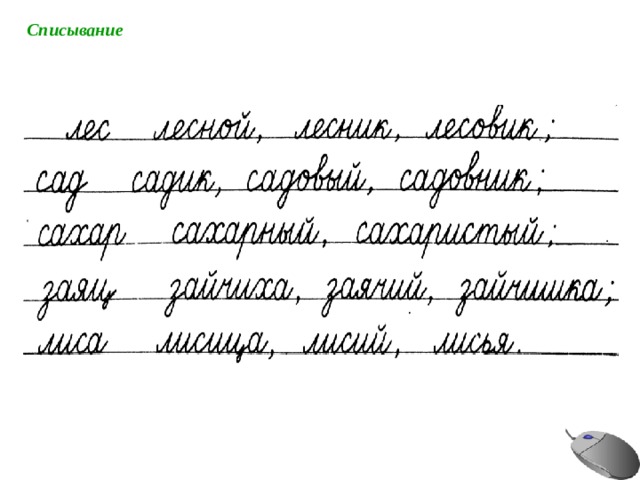 Списывание
лес лесной, лесник, лесовик;
сад садик, садовый, садовник;
сахар сахарный, сахаристый;
заяц зайчиха, заячий, зайчишка;
лиса лисица, лисий, лисья.